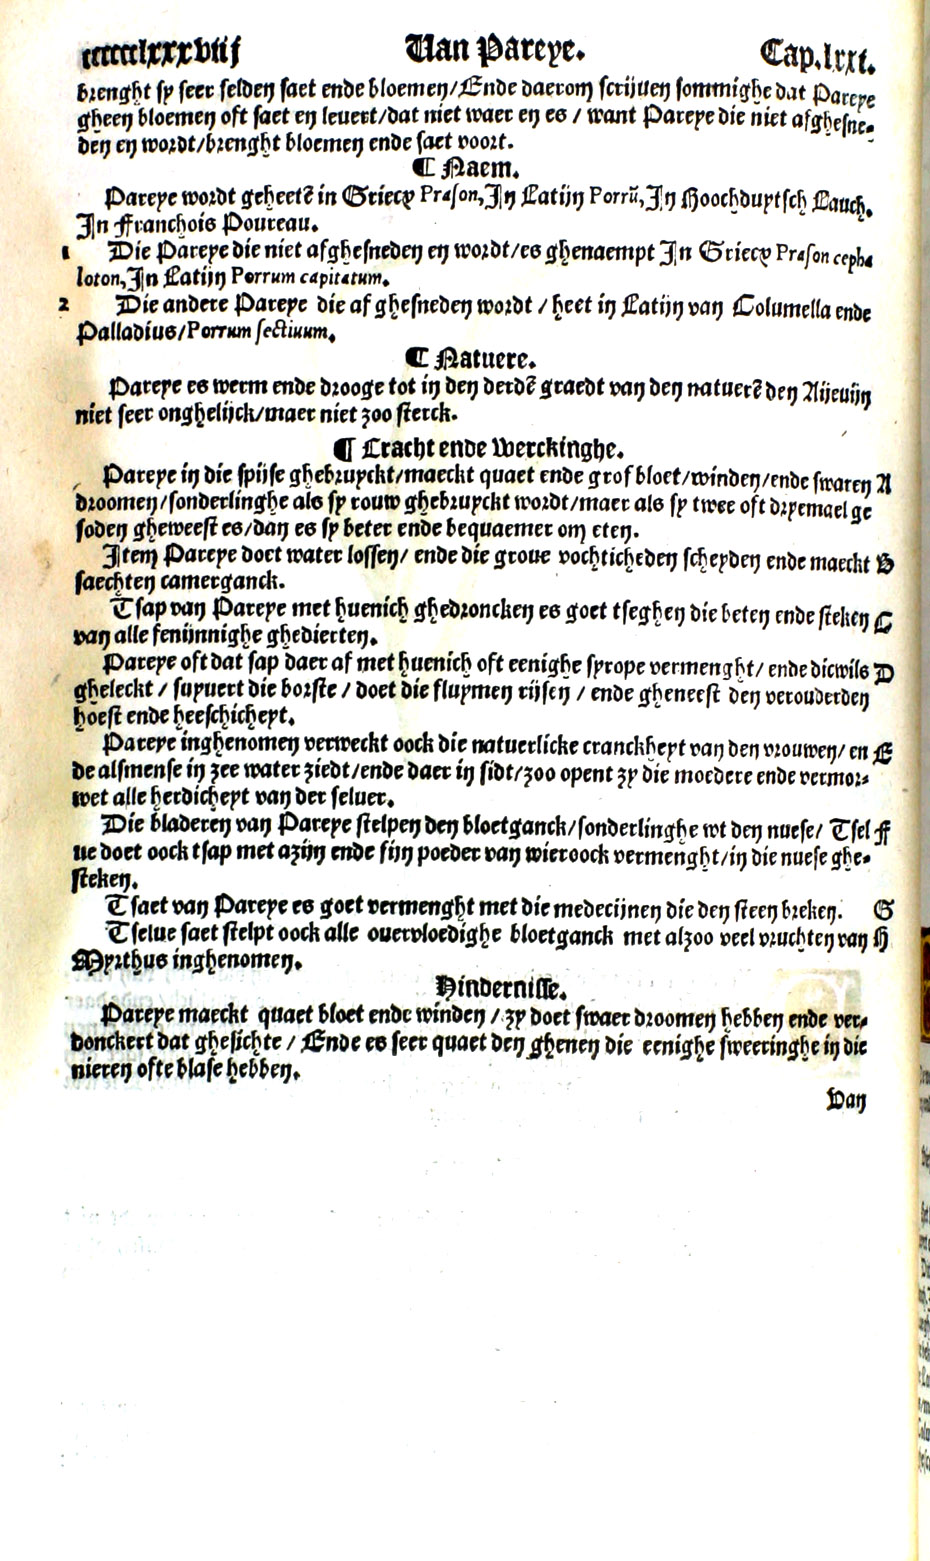 ccccclxxxviij Van Pareye. Cap.lxxi.
brenght sy seer selden saet ende bloemen/Ende daerom scrijuen sommighe dat Pareye
gheen bloemen oft saet en leuert/dat niet waer en es / want Pareye die niet afghesne-
den en wordt/brenght bloemen ende saet voort.
¶ Naem.
Pareye wordt geheetē in Griecx Prason, In Latijn Porrū, In Hoochduytsch Lauch.
In Franchois Poureau.
1 Die Pareye die niet afghesneden en wordt/es ghenaempt In Griecx Prason cepha
loton, In Latijn Porrum capitatum.
2 Die andere Pareye die afghesneden wordt / heet in Latijn van Columella ende
Palladius/Porrum sectiuum.
¶ Natuere.
Pareye es werm ende drooge tot in den derdē graedt van den natuerē den Aijeuijn
niet seer onghelijck/maer niet zoo sterck.
¶ Cracht ende Werckinghe.
Pareye in die spijse ghebruyckt/maeckt quaet ende grof bloet/winden/ende swaren A
droomen/sonderlinghe als sy rouw ghebruyckt wordt/maer als sy twee oft dryemael ge
soden gheweest es/dan es sy beter ende bequaemer om eten.
Item Pareye doet water lossen/ ende die groue vochticheden scheyden ende maeckt B
saechten camerganck.
Tsap van Pareye met huenich ghedroncken es goet tseghen die beten ende steken C
van alle fenijnnighe ghedierten.
Pareye oft dat sap daer af met huenich oft eenighe syrope vermenght/ ende dicwils D
gheleckt / suyuert die borste / doet die fluymen rijsen / ende gheneest den verouderden
hoest ende heeschicheyt.
Pareye inghenomen verweckt oock die natuerlicke cranckheyt van den vrouwen/ en E
de alsmense in zee water ziedt/ende daer in sidt/zoo opent zy die moedere ende vermor-
wet alle herdicheyt van der seluer.
Die bladeren van Pareye stelpen den bloetganck/sonderlinghe wt den nuese/ Tsel F
ue doet oock tsap met azijn ende fijn poeder van wieroock vermenght/in die nuese ghe-
steken.
Tsaet van Pareye es goet vermenght met die medecijnen die den steen breken. G
Tselue saet stelpt oock alle ouervloedighe bloetganck met alzoo veel vruchten van H
Myrthus inghenomen.
Hindernisse.
Pareye maeckt quaet bloet ende winden / zy doet swaer droomen hebben ende ver-
donckert dat ghesichte / Ende es seer quaet den ghenen die eenighe sweeringhe in die
nieren ofte blase hebben.
Van